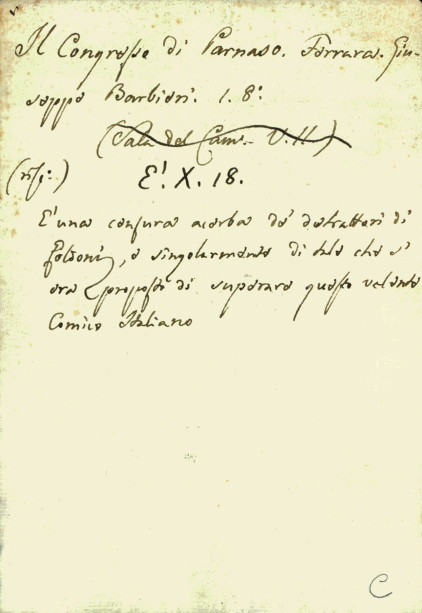 Il Congresso di Parnaso. Ferrara. Giu-
seppe Barbieri. 1. 8°:
(Sala del Cam.. V. II)
(risp:) E! X. 18.
E' una censura acerba de' detrattori di
Goldoni, e singolarmente di tale che s'
era proposto di superare questo valente
Comico Italiano
C